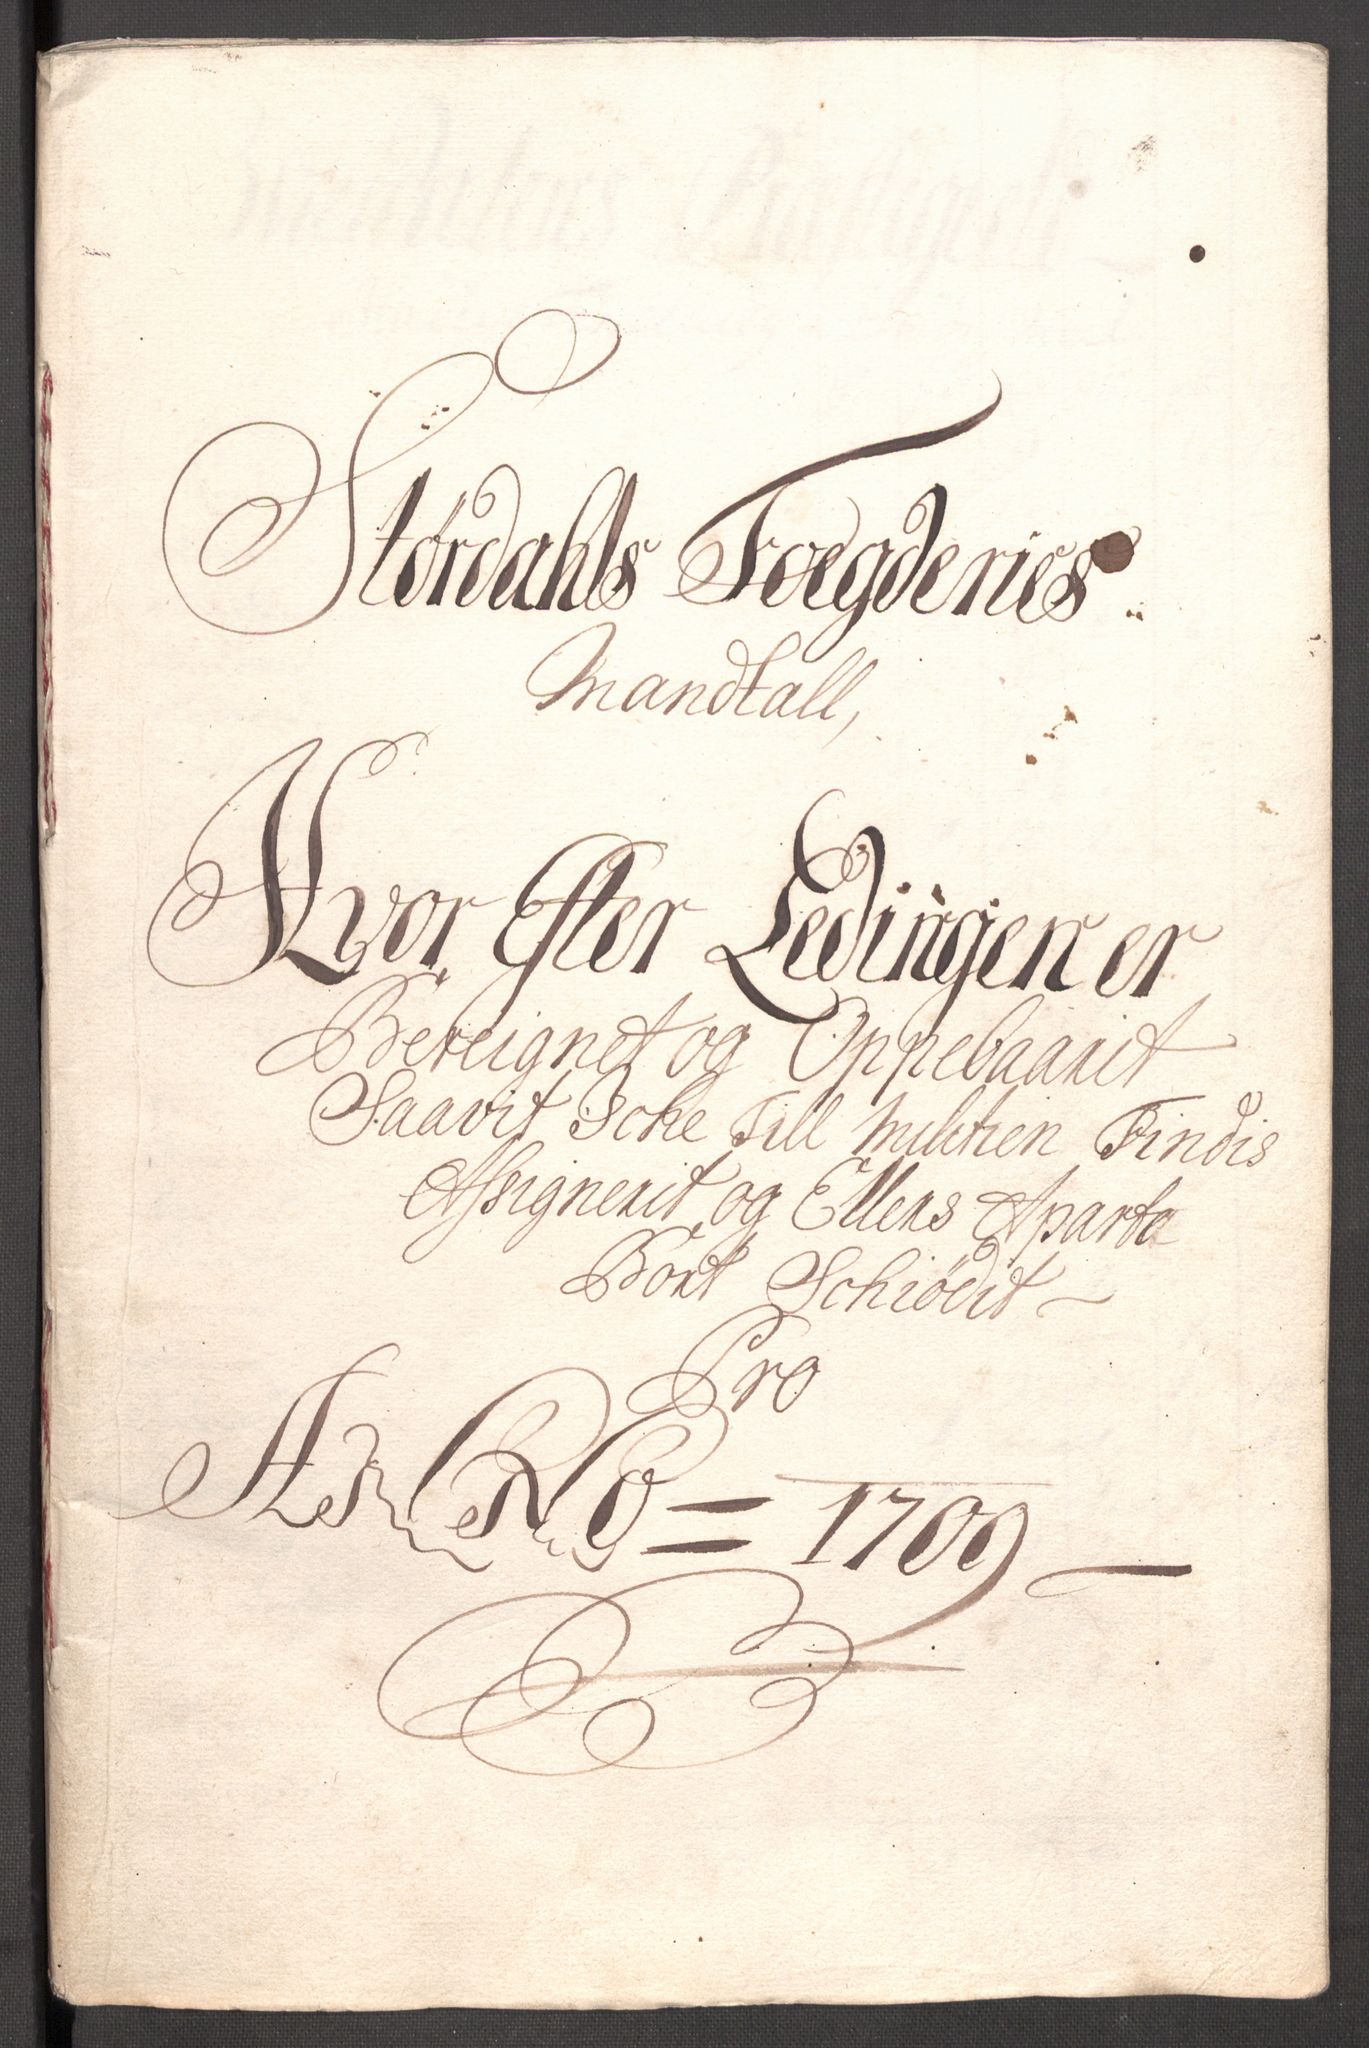 Størdahls Foegderies
Mandtall,
Hvor Efter Ledingen er
Bereignet og Oppebaarit
Saavit Iche Till militien Findis
Assignerit og Ellers Aparte
Bort Schiödit
Pro
ANNO = 1709